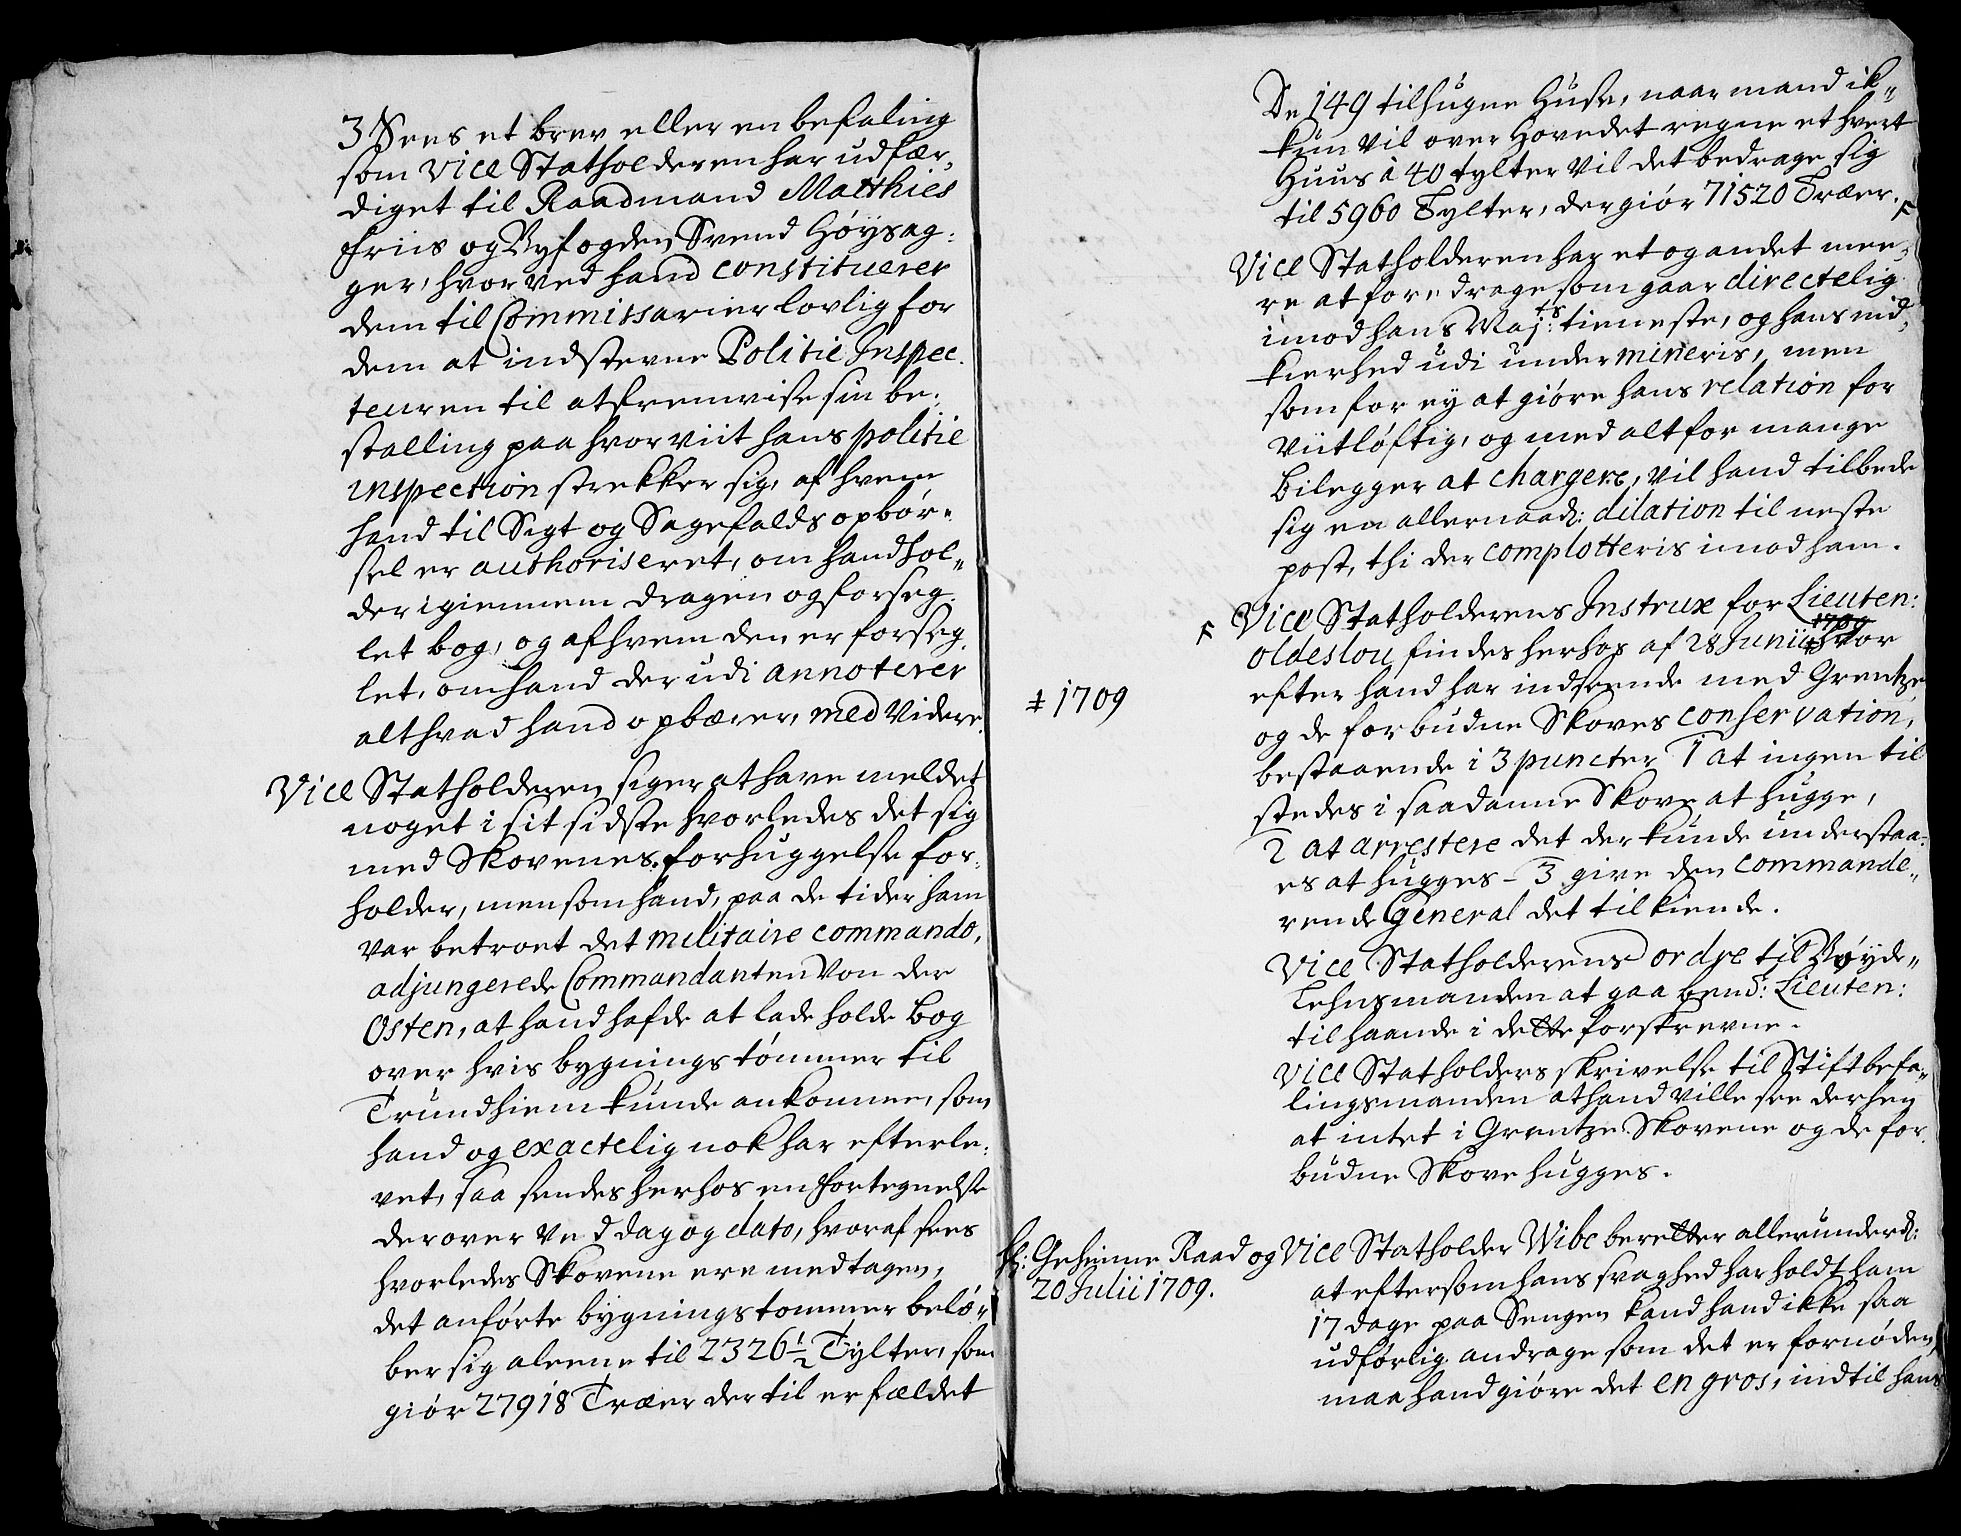 3 Sees et brev eller en befaling
som Vice Statholderen har udfær¬
diget til Raadmand Matthies
Friis og Byfogden Svend Høysag:
ger, hvorved hand constituerer
dem til Commissarier lovlig for
dem at indstevne Politie Inspec¬
teuren til at fremvise sin be¬
stalling paa hvor viit hans politie
inspection strekker sig, af hvem
hand til Sigt og Sagefalds opbør¬
sel er authoriseret, om hand hol¬
der igiennem dragen og forseg¬
let bog, og af hvem den er forseg¬
let, om hand derudi annoterer
alt hvad hand opbærer, med Videre.
Vice Statholderen siger at have meldet
noget i sit sidste hvorledes det sig
med Skovenes forhuggelse for¬
holder, men som hand, paa de tider ham
var betroet det militaire commando,
adjungerede Commandanten Von der
Osten, at hand hafde at lade holde bog
over hvis bygnings tømmer til
Trundhiem kunde ankomme, som
hand og exactelig nok har efterle¬
vet, saa sendes herhos en fortegnelse
derover ved dag og dato, hvoraf sees
hvorledes Skovene ere medtagen,
det anførte bygnings tømmer belø¬
ber sig aleene til 2326½ Tylter, som
giør 27918 Træer der til er fældet
De 149 tilhugne Huse, naar mand ik¬
kun vil over Hovedet regne et hvert
Huus à 40 tylter vil det bedrage sig
til 5960 Tylter, der giør 71520 Træer. F
Vice Statholderen har et og andet mee¬
re at foredrage som gaar directelig
imod hans Maj:ts tieneste, og hans nid¬
kierhed udi undermineris, men
som for ey at giøre hans relation for
viitløftig, og med alt for mange
bilegger at chargere, vil hand tilbede
sig en allernaad: dilation til neste
post, thi der complotteris imod ham.
F Vice Statholderens Instrux for Lieuten:
1709
Oldeslou findes herhos af 28 Junii ‡ hvor
efter hand har indseende med Grentze
‡ 1709
og de forbudne Skoves conservation,
bestaaende i 3 puncter 1 at ingen til
stedes i saadanne Skove at hugge,
2 at arrestere det der kunde understaa¬
es at hugges - 3 give den commande¬
rende General det tilkiende.
Vice Statholderens ordre til Røyde¬
Lehnsmanden at gaa bemd: Lieuten:
til haande i dette forskrevne.
Vice Statholders skrivelse til Stiftbefa¬
lingsmanden at hand ville see derhen
at intet i Grentze Skovene og de for¬
budne Skove hugges.
H: Geheime Raad og Vice Statholder Wibe beretter allerunderd:
20 Julii 1709.
at eftersom hans svaghed har holdt ham
17 dage paa Sengen kand hand ikke saa
udførlig andrage som det er fornøden,
maa hand giøre det en gros, indtil hans